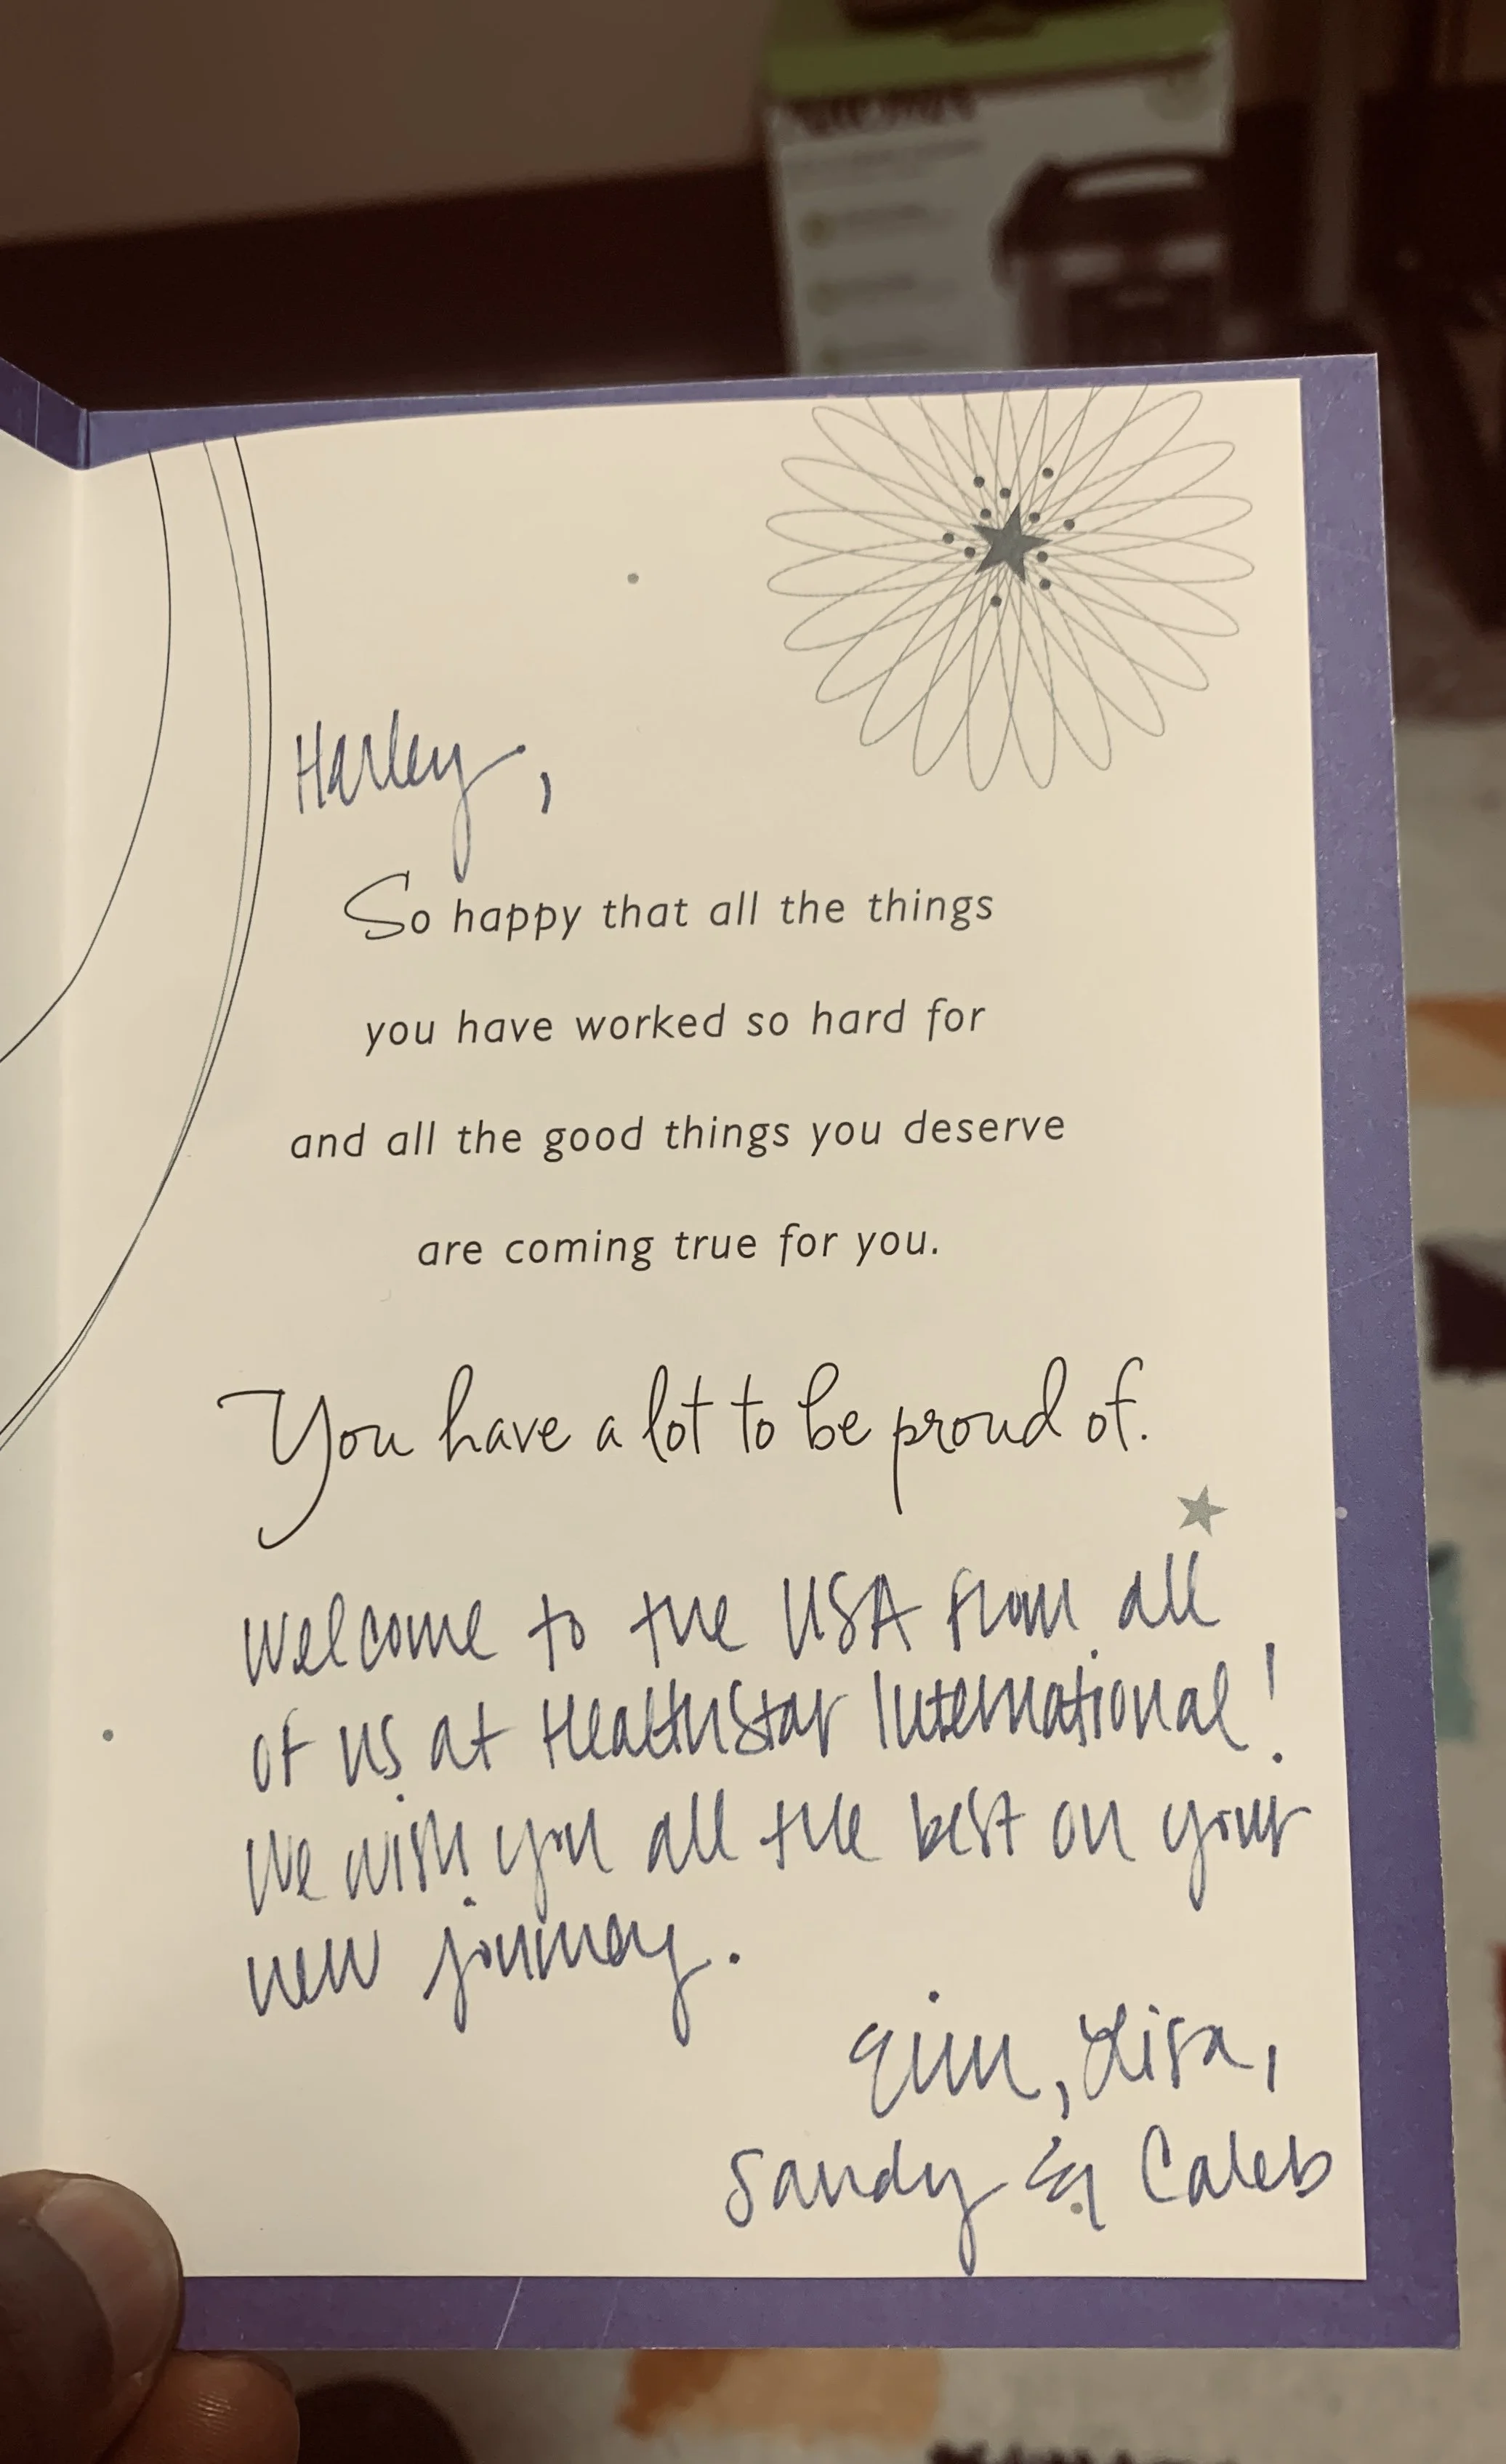 Harley,
So happy that all the things
you have worked so hard for
and all the good things you deserve
are coming true for you.
You have a lot to be proud of.
Welcome to the USA from all
of us at HealthStar International!
We wish you all the best on your
new journey.
Erin, Lisa,
Sandy & Caleb